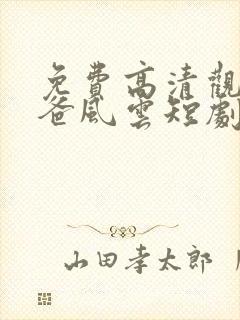 免費高清觀
爸風雲短劇
山田孝太郎